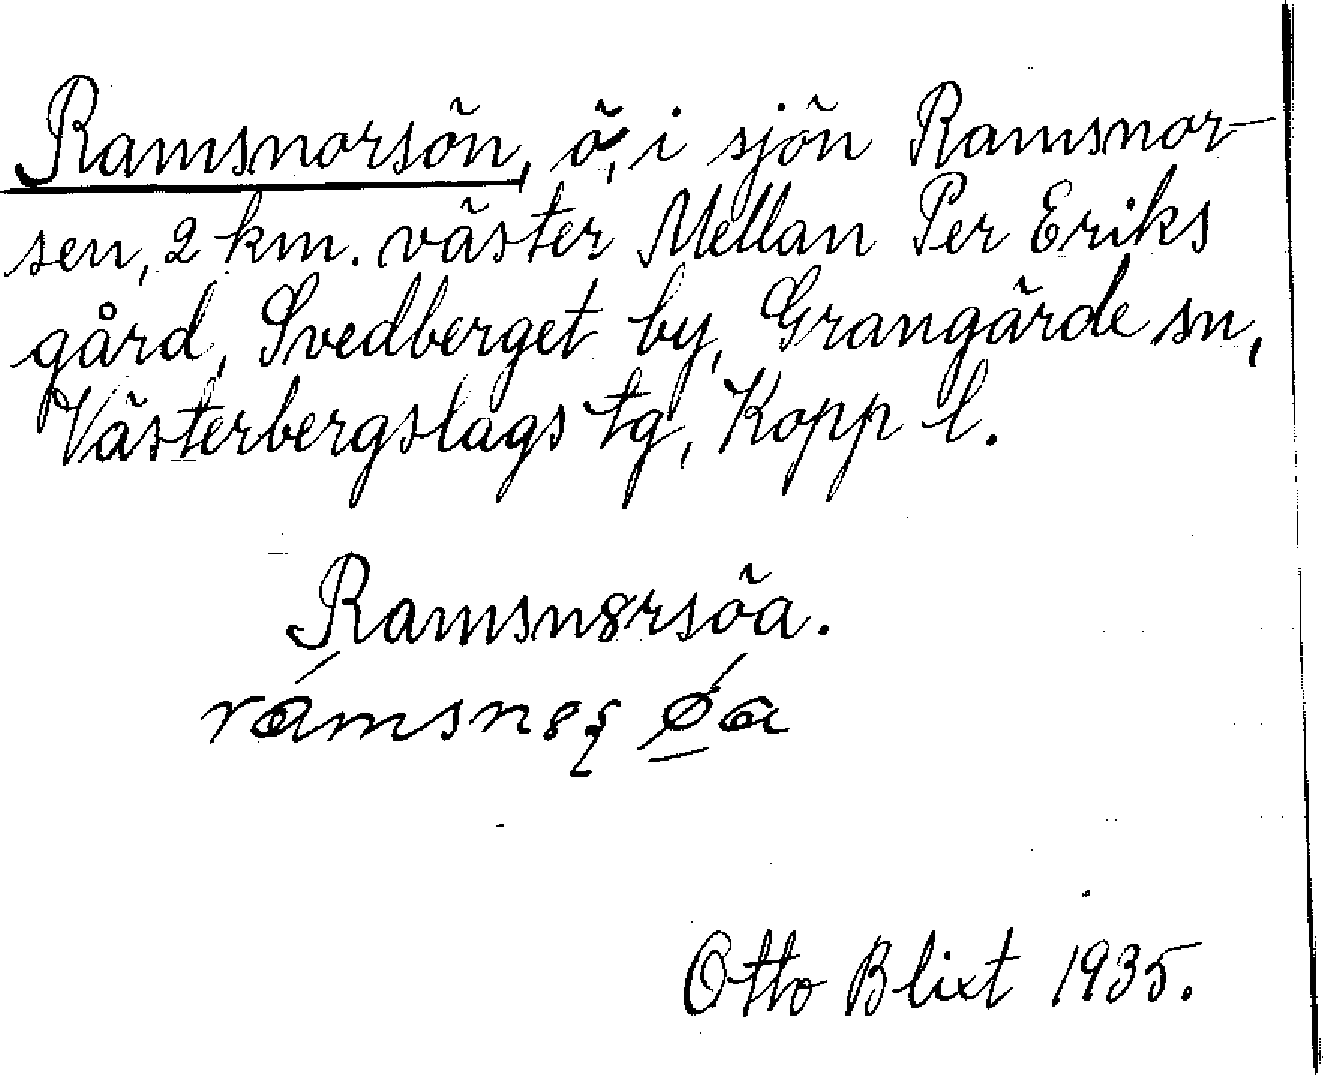 Ramsnorsön, ö, i sjön Ramsnor-
sen, 2 km. väster Mellan Per Eriks
gård, Svedberget by, Grangärde sn,
Västerbergslags tg, Kopp l.
Ramsn8rsöa.
Otto Blixt 1935.